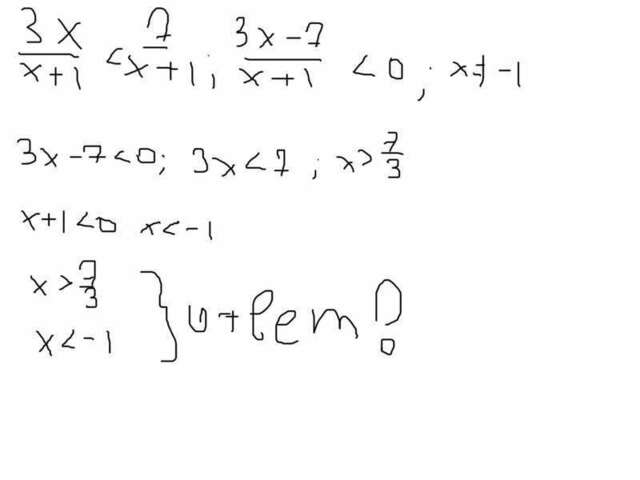 3x/x+1 < 7/x+1; 3x-7/x+1 < 0; x≠-1
3x-7<0; 3x<7; x>7/3
x+1<0 x<-1
x>7/3
x<-1 } ответ?